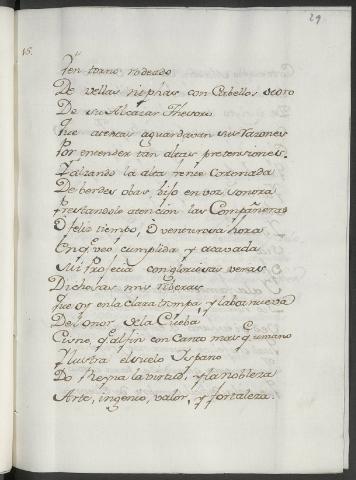 29
15.
Y en torno rodeado
De vellas niephas con Cabellos de oro
De su Alcazar Thesoro
Que atentas aguardavan sus razones
Por entender tan altas pretensiones.
Y alzando la alta frente Coronada
De berdes obas, dijo en voz sonora
Prestandole atencion las Compañeras
O feliz tiempo, O venturosa hora
En q.e veo cumplida y acavada
Su Profecia con gloriosas veras
Dichosas mis riberas
Que oy en la clara trompa y labor nueva
Del onor de la Cueba
Cisne, q.e al fin con Canto mas q.e umano
Ylustra el suelo Ispano
Do Reyna la virtud, y la nobleza
Arte, ingenio, valor, y fortaleza.